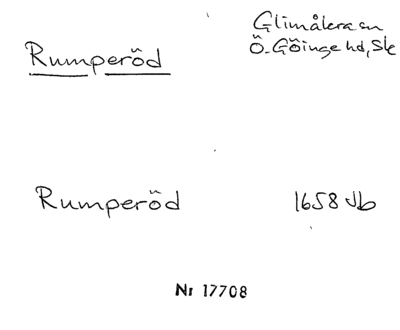 Rumperöd
Glimåkra sn
Ö. Göinge hd, Sk
Rumperöd
1658 Jb
Nr 17708